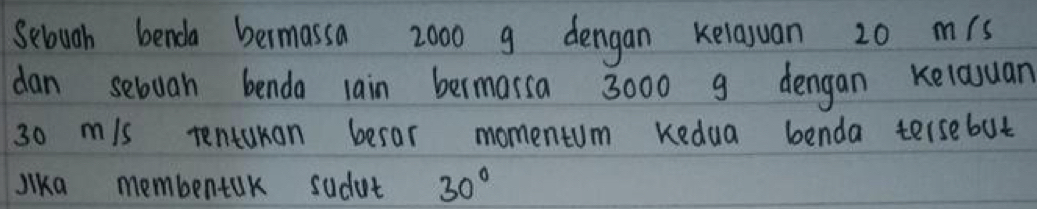 Sebuah benda bermassa 2000 g dengan kelajuan 20 m/s
dan sebuah benda lain bermassa 3000 g dengan kelajuan
30 m/s Tentukan besar momentum kedua benda tersebut
Jika membentuk sudut 30°